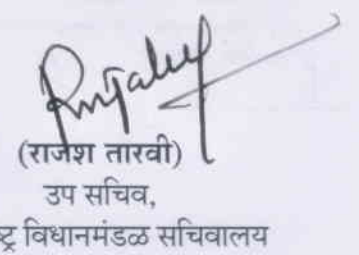 (राजेश तारवी)
उप सचिव,
ष्ट्र विधानमंडळ सचिवालय